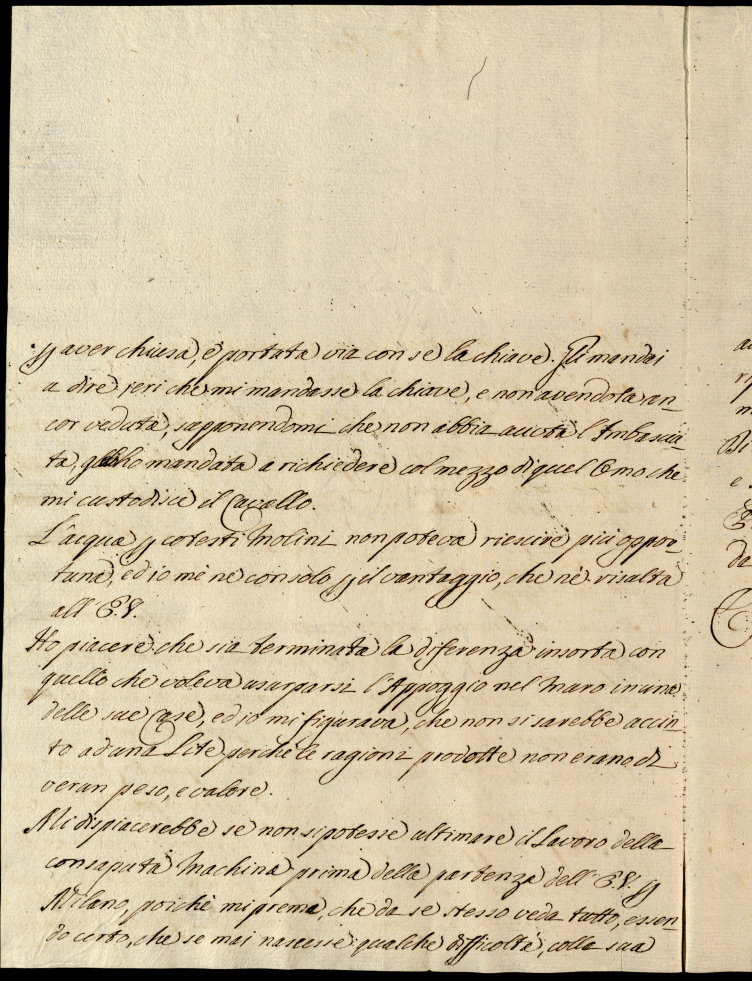 p aver chiusa, e portata via con se la chiave. Gli mandai
a dire jeri che mi mandasse la chiave, e non avendola an-
cor veduta, supponendomi che non abbia avuta l'Imbascia-
ta, mandata a richiedere col mezzo di quel Omo che
mi custodisce il Cavallo.
L'acqua p cotesti Molini non poteva riescire più oppor-
tuna, ed io me ne consolo p il vantaggio, che ne risulta
all' E.V.
Ho piacere che sia terminata la diferenza insorta con
quello che voleva usurparsi l'Appoggio nel Muro in una
delle sue Case, ed io mi figurava, che non si sarebbe accin-
to ad una Lite, perche le ragioni prodotte non erano di
verun peso, e valore.
Mi dispiacerebbe se non si potesse ultimare il Lavoro della
consaputa Machina prima della partenza dell' E.V. p
Milano, poiche mi prema, che da se stesso veda tutto, essen-
do certo, che se mai nascesse qualche difficoltà, colla sua